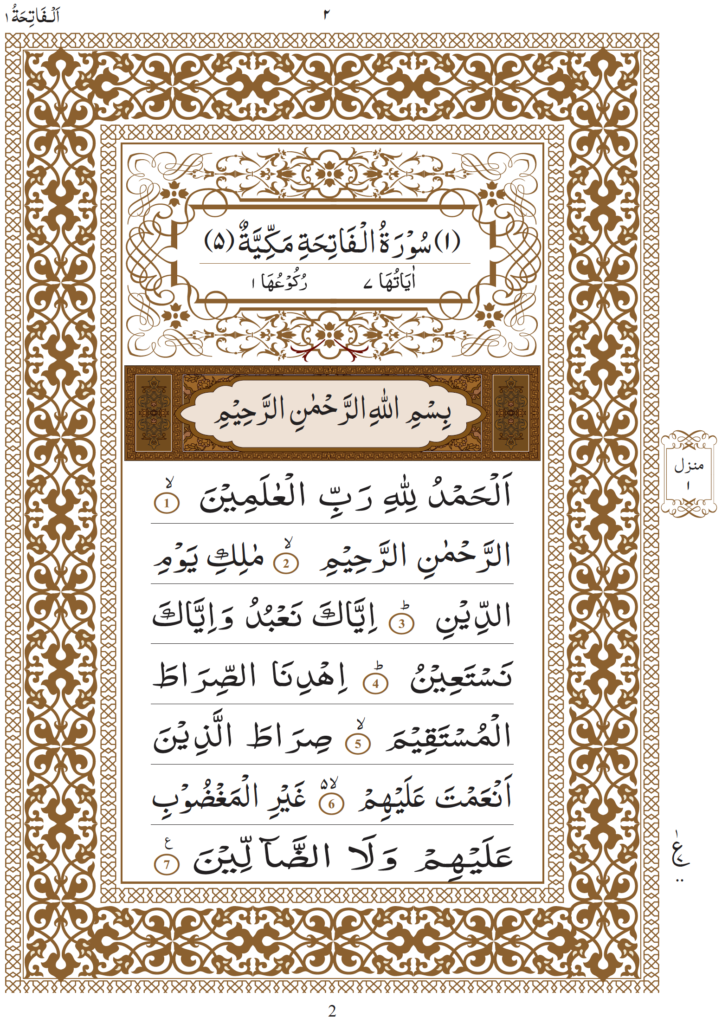 اَلْفَاتِحَةُ ١
٢
(١) سُوْرَةُ الْفَاتِحَةِ مَكِّيَّةٌ (۵)
اٰيَاتُهَا ٧ رُكُوْعُهَا ١
بِسْمِ اللّٰهِ الرَّحْمٰنِ الرَّحِيْمِ
اَلْحَمْدُ لِلّٰهِ رَبِّ الْعٰلَمِيْنَ ۙ 1
الرَّحْمٰنِ الرَّحِيْمِ ۙ 2 مٰلِكِ يَوْمِ
الدِّيْنِ ؕ 3 اِيَّاكَ نَعْبُدُ وَاِيَّاكَ
نَسْتَعِيْنُ ؕ 4 اِهْدِنَا الصِّرَاطَ
الْمُسْتَقِيْمَ ۙ 5 صِرَاطَ الَّذِيْنَ
اَنْعَمْتَ عَلَيْهِمْ ۙ۵ 6 غَيْرِ الْمَغْضُوْبِ
عَلَيْهِمْ وَلَا الضَّآلِّيْنَ ع 7
منزل
١
2